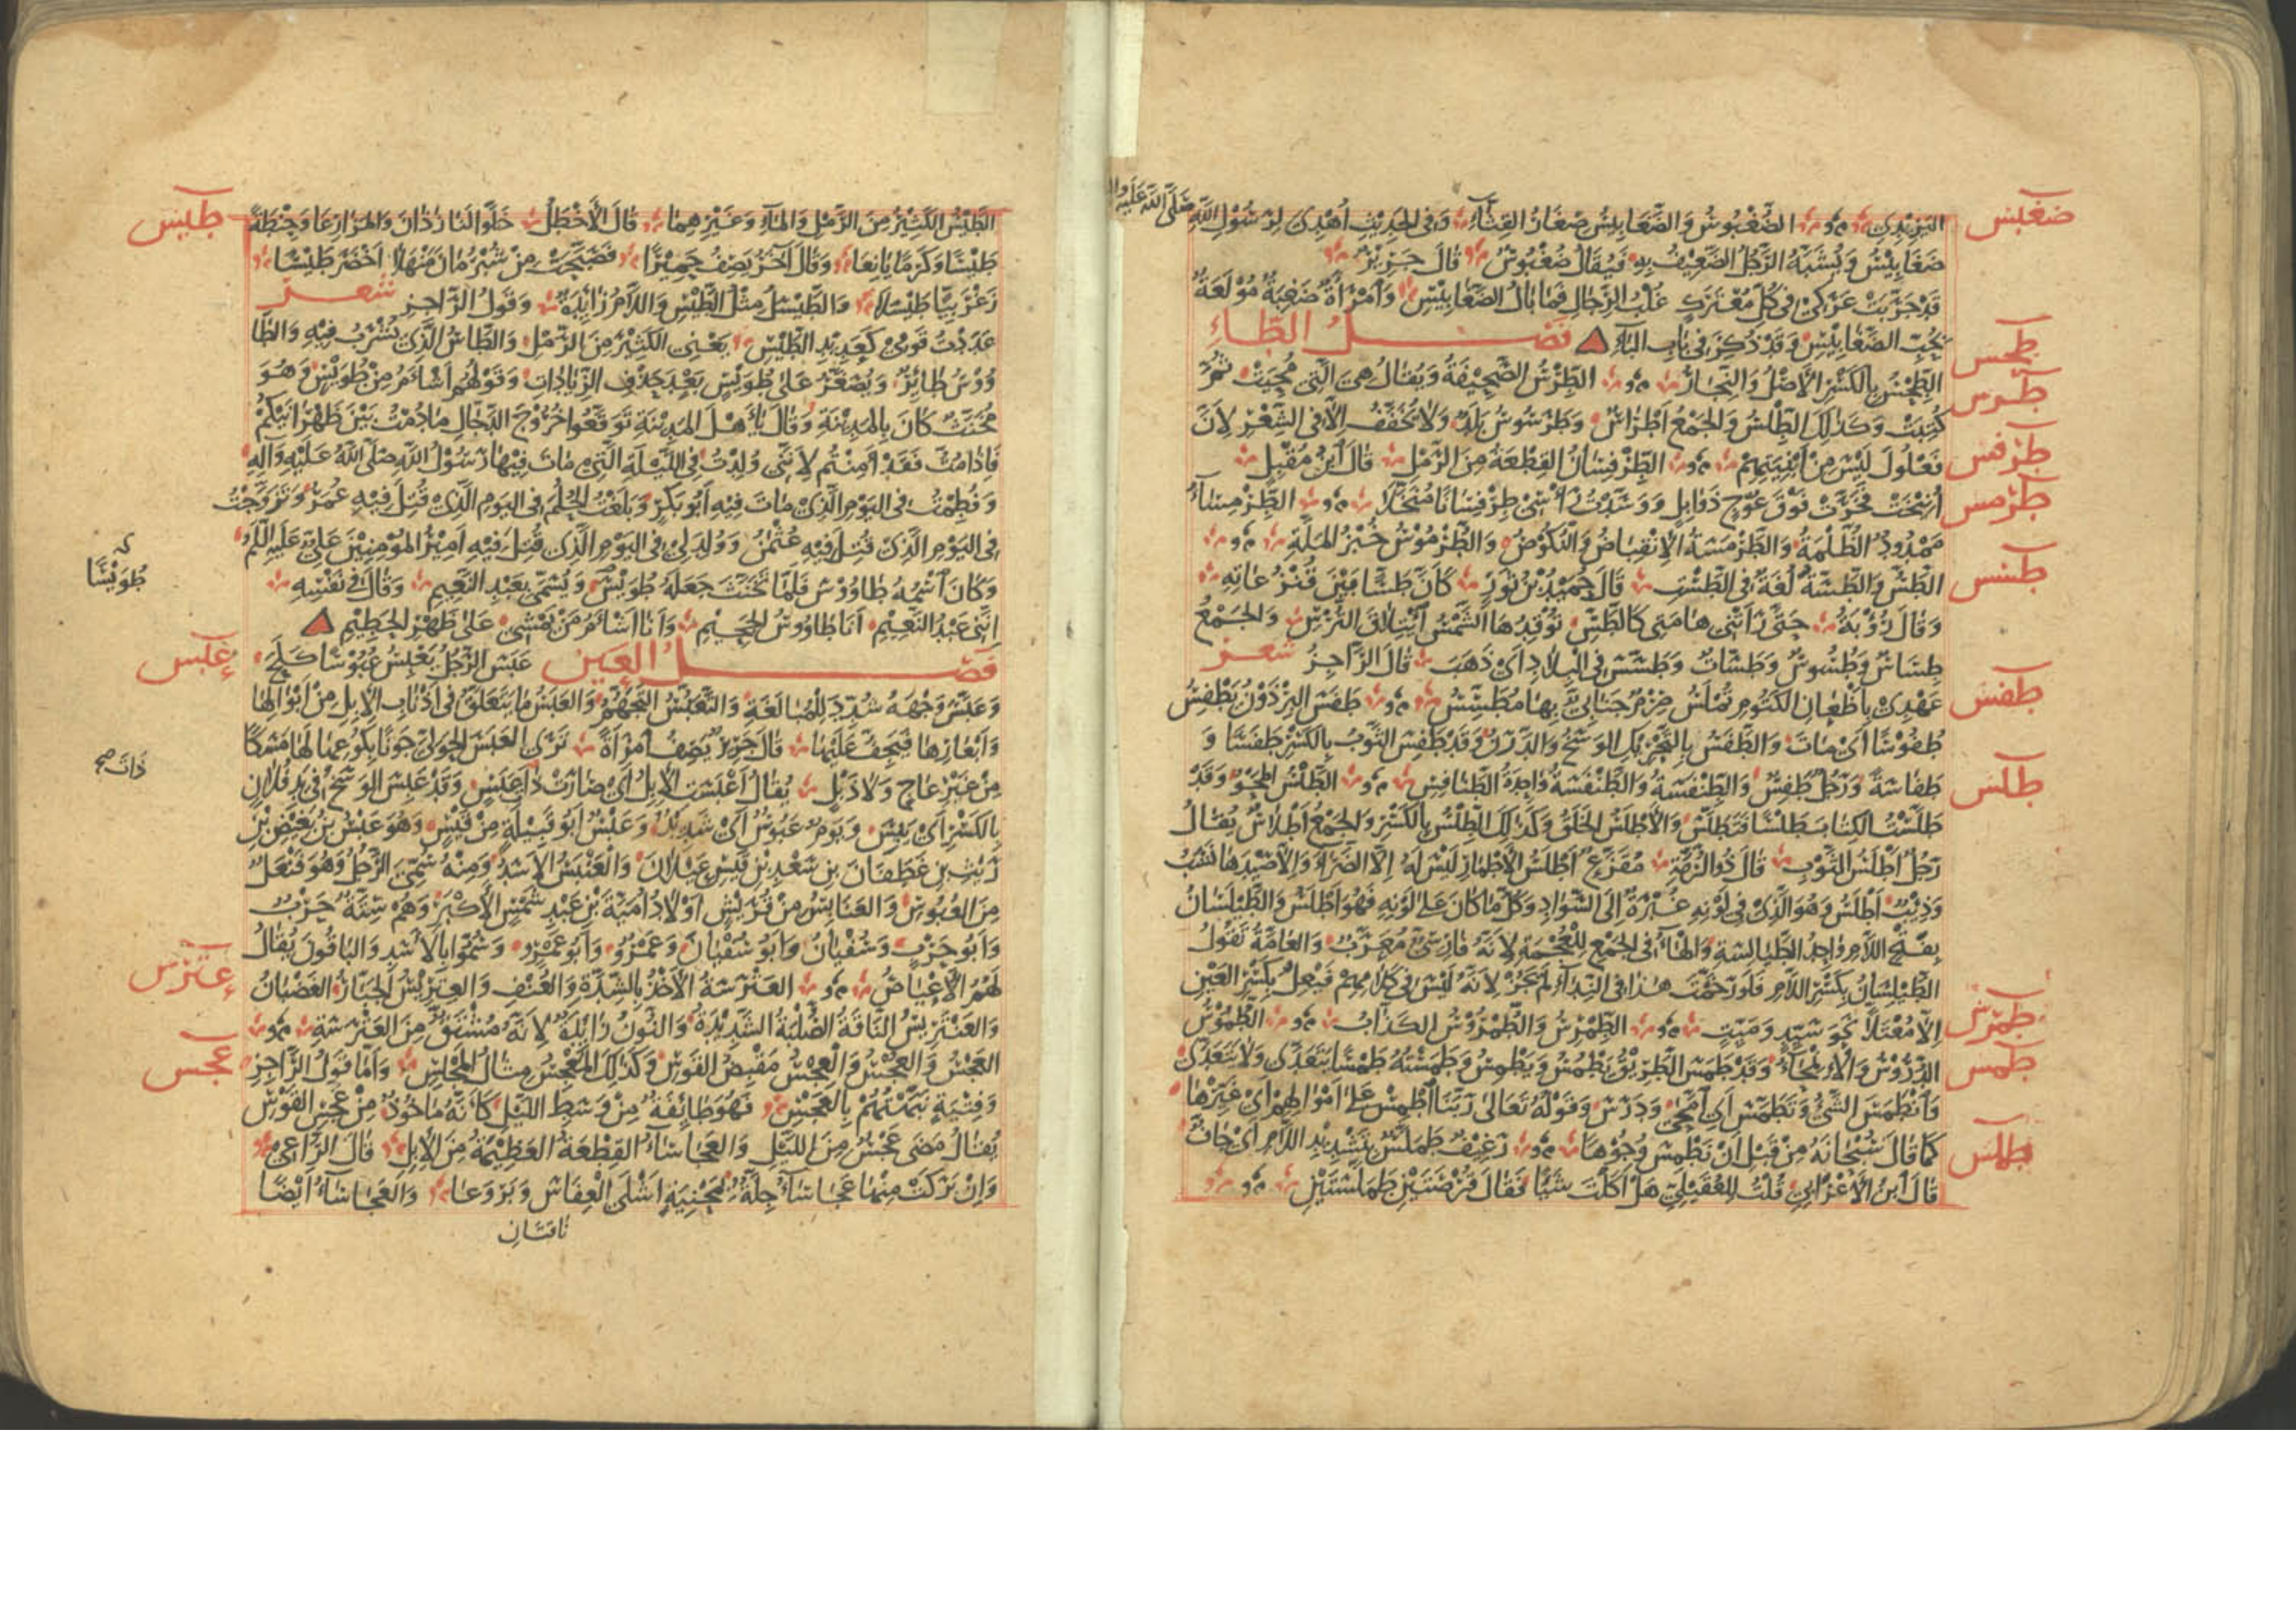 اليزيدي الضُّغْبُوسُ وَالضَّغَابِيسُ صِغَارُ القِثَّاءِ وَفِي الحَدِيثِ أُهْدِيَ لِرَسُولِ اللهِ صَلَّى اللهُ عَلَيْهِ وَآلِهِ
ضَغَابِيسُ وَيُشَبَّهُ الرَّجُلُ الضَّعِيفُ بِهِ فَيُقَالُ ضُغْبُوسٌ قَالَ جَرِيرٌ
قَدْ جَرَّبَتْ عَرَكِي فِي كُلِّ مُعْتَرَكٍ غُلْبُ الرِّجَالِ فَمَا بَالُ الضَّغَابِيسِ وَامْرَأَةٌ ضَغِبَةٌ مُوْلَعَةٌ
بِحُبِّ الضَّغَابِيسِ وَقَدْ ذُكِرَ فِي بَابِ البَاءِ فَصْلُ الطَّاءِ
الطِّحْسُ بِالكَسْرِ الأَصْلُ وَالنِّجَارُ الطِّرْسُ الصَّحِيفَةُ وَيُقَالُ هِيَ الَّتِي مُحِيَتْ ثُمَّ
كُتِبَتْ وَكَذَلِكَ الطِّلْسُ وَالجَمْعُ أَطْرَاسٌ وَطَرَسُوسُ بَلَدٌ وَلَا تُخَفَّفُ إِلَّا فِي الشِّعْرِ لِأَنَّ
فَعْلُولَ لَيْسَ مِنْ أَبْنِيَتِهِمْ الطِّرْفِسَانُ القِطْعَةُ مِنَ الرَّمْلِ قَالَ ابْنُ مُقْبِلٍ
أُنِيخَتْ فَخَرَّتْ فَوْقَ عُوْجٍ ذَوَابِلٍ وَوَسَّدْتُ رَأْسِي طِرْفِسَانًا مُنَخَّلًا الطِّرْمِسَاءُ
مَمْدُودٌ الظُّلْمَةُ وَالطَّرْمَسَةُ الاِنْقِبَاضُ وَالنُّكُوصُ وَالطُّرْمُوسُ خُبْزُ المَلَّةِ
الطَّسُّ وَالطَّسَّةُ لُغَةٌ فِي الطَّسْتِ قَالَ حُمَيْدُ بْنُ ثَوْرٍ كَأَنَّ طَسًّا بَيْنَ قُنْزُعَاتِهِ
وَقَالَ رُؤْبَةُ حَتَّى رَأَتْنِي هَامَتِي كَالطَّسِّ تُوقِدُهَا الشَّمْسُ ائْتِلَاقَ التُّرْسِ وَالجَمْعُ
طِسَاسٌ وَطُسُوسٌ وَطَسَّاتٌ وَطَسَّسَ فِي البِلَادِ أَيْ ذَهَبَ قَالَ الرَّاجِزُ شعر
عَهْدِي بِأَظْعَانِ الكَتُومِ تُمْلَسُ صِرْمٌ جَنَانِيٌّ بِهَا مُطَسِّسُ طَفَسَ البِرْذَوْنُ يَطْفِسُ
طُفُوسًا أَيْ مَاتَ وَالطَّفَسُ بِالتَّحْرِيكِ الوَسَخُ وَالدَّرَنُ وَقَدْ طَفِسَ الثَّوْبُ بِالكَسْرِ طَفَسًا وَ
طَفَاسَةً وَرَجُلٌ طَفِسٌ وَالطِّنْفِسَةُ وَالطِّنْفَسَةُ وَاحِدَةُ الطَّنَافِسِ الطَّلْسُ المَحْوُ وَقَدْ
طَلَسْتُ الكِتَابَ طَلْسًا فَتَطَلَّسَ وَالأَطْلَسُ الخَلَقُ وَكَذَلِكَ الطِّلْسُ بِالكَسْرِ وَالجَمْعُ أَطْلَاسٌ يُقَالُ
رَجُلٌ أَطْلَسُ الثَّوْبِ قَالَ ذُو الرُّمَّةِ مُقَزَّعٌ أَطْلَسُ الأَطْمَارِ لَيْسَ لَهُ إِلَّا الضِّرَاءَ وَإِلَّا صَيْدَهَا نَشَبُ
وَذِئْبٌ أَطْلَسُ وَهُوَ الَّذِي فِي لَوْنِهِ غُبْرَةٌ إِلَى السَّوَادِ وَكُلُّ مَا كَانَ عَلَى لَوْنِهِ فَهُوَ أَطْلَسُ وَالطَّيْلَسَانُ
بِفَتْحِ اللَّامِ وَاحِدُ الطَّيَالِسَةِ وَالهَاءُ فِي الجَمْعِ لِلْعُجْمَةِ لِأَنَّهُ فَارِسِيٌّ مُعَرَّبٌ وَالعَامَّةُ تَقُولُ
الطَّيْلِسَانُ بِكَسْرِ اللَّامِ فَلَوْ رَخَّمْتَ هَذَا فِي النِّدَاءِ لَمْ يَجُزْ لِأَنَّهُ لَيْسَ فِي كَلَامِهِمْ فَيْعِلٌ بِكَسْرِ العَيْنِ
إِلَّا مُعْتَلًّا نَحْوَ سَيِّدٍ وَمَيِّتٍ الطِّمْرِسُ وَالطُّمْرُوسُ الكَذَّابُ الطُّمُوسُ
الدُّرُوسُ وَالاِمِّحَاءُ وَقَدْ طَمَسَ الطَّرِيقُ يَطْمُسُ وَيَطْمِسُ وَطَمَسْتُهُ طَمْسًا يَتَعَدَّى وَلَا يَتَعَدَّى
وَانْطَمَسَ الشَّيْءُ وَتَطَمَّسَ أَيْ امَّحَى وَدَرَسَ وَقَوْلُهُ تَعَالَى رَبَّنَا اطْمِسْ عَلَى أَمْوَالِهِمْ أَيْ غَيِّرْهَا
كَمَا قَالَ سُبْحَانَهُ مِنْ قَبْلِ أَنْ نَطْمِسَ وُجُوهًا رَغِيفٌ طَمَلَّسٌ بِتَشْدِيدِ اللَّامِ أَيْ جَافٌّ
قَالَ ابْنُ الأَعْرَابِيِّ قُلْتُ لِلْعُقَيْلِيِّ هَلْ أَكَلْتَ شَيْئًا فَقَالَ قُرْصَتَيْنِ طَمَلَّسَتَيْنِ
ضغبس
طحس
طرس
طرفس
طرمس
طسس
طفس
طلس
طمرس
طمس
طملس
الطَّيْسُ الكَثِيرُ مِنَ الرَّمْلِ وَالمَاءِ وَغَيْرِهِمَا قَالَ الأَخْطَلُ خَلَّوْا لَنَا رَاذَانَ وَالمَزَارِعَا وَحِنْطَةً
طَيْسًا وَكَرْمًا يَانِعَا وَقَالَ آخَرُ يَصِفُ حَمِيرًا فَصَبَّحَتْ مِنْ شُبْرُمَانَ مَنْهَلَا أَخْضَرَ طَيْسًا
زَغْرَبِيًّا طَيْسَلَا وَالطَّيْسَلُ مِثْلُ الطَّيْسِ وَاللَّامُ زَائِدَةٌ وَقَوْلُ الرَّاجِزِ شعر
عَدَدْتُ قَوْمِي كَعَدِيدِ الطَّيْسِ يَعْنِي الكَثِيرَ مِنَ الرَّمْلِ وَالطَّاسُ الَّذِي يُشْرَبُ فِيهِ وَالطَّا
وُوسُ طَائِرٌ وَيُصَغَّرُ عَلَى طُوَيْسٍ بَعْدَ حَذْفِ الزِّيَادَاتِ وَقَوْلُهُمْ أَشْأَمُ مِنْ طُوَيْسٍ وَهُوَ
مُخَنَّثٌ كَانَ بِالمَدِينَةِ وَقَالَ يَا أَهْلَ المَدِينَةِ تَوَقَّعُوا خُرُوجَ الدَّجَّالِ مَا دُمْتُ بَيْنَ ظَهْرَانَيْكُمْ
فَإِذَا مُتُّ فَقَدْ أَمِنْتُمْ لِأَنِّي وُلِدْتُ فِي اللَّيْلَةِ الَّتِي مَاتَ فِيهَا رَسُولُ اللهِ صَلَّى اللهُ عَلَيْهِ وَآلِهِ
وَفُطِمْتُ فِي اليَوْمِ الَّذِي مَاتَ فِيهِ أَبُو بَكْرٍ وَبَلَغْتُ الحُلُمَ فِي اليَوْمِ الَّذِي قُتِلَ فِيهِ عُمَرُ وَتَزَوَّجْتُ
فِي اليَوْمِ الَّذِي قُتِلَ فِيهِ عُثْمٰنُ وَوُلِدَ لِي فِي اليَوْمِ الَّذِي قُتِلَ فِيهِ أَمِيرُ المُؤْمِنِينَ عَلِيٌّ عَلَيْهِ السَّلَمُ
وَكَانَ اسْمُهُ طَاوُوسَ فَلَمَّا تَخَنَّثَ جَعَلَهُ طُوَيْسٌ وَيُسَمَّى بِعَبْدِ النَّعِيمِ وَقَالَ فِي نَفْسِهِ
إِنَّنِي عَبْدُ النَّعِيمِ أَنَا طَاوُوسُ الجَحِيمِ وَأَنَا أَشْأَمُ مَنْ يَمْشِي عَلَى ظَهْرِ الحَطِيمِ
فَصْلُ العَيْنِ عَبَسَ الرَّجُلُ يَعْبِسُ عُبُوسًا كَلَحَ
وَعَبَّسَ وَجْهَهُ شُدِّدَ لِلْمُبَالَغَةِ وَالتَّعَبُّسُ التَّجَهُّمُ وَالعَبَسُ مَا يَتَعَلَّقُ فِي أَذْنَابِ الإِبِلِ مِنْ أَبْوَالِهَا
وَأَبْعَارِهَا فَيَجِفُّ عَلَيْهَا قَالَ جَرِيرٌ يَصِفُ امْرَأَةً تَرَى العَبَسَ الحَوْلِيَّ جَوْنًا بِكُوعِهَا لَهَا مَسَكًا
مِنْ غَيْرِ عَاجٍ وَلَا ذَبْلِ يُقَالُ أَعْبَسَتِ الإِبِلُ أَيْ صَارَتْ ذَا عَبَسٍ وَقَدْ عَبِسَ الوَسَخُ فِي يَدِ فُلَانٍ
بِالكَسْرِ أَيْ يَبِسَ وَيَوْمٌ عَبُوسٌ أَيْ شَدِيدٌ وَعَبْسٌ أَبُو قَبِيلَةٍ مِنْ قَيْسٍ وَهُوَ عَبْسُ بْنُ بَغِيضِ بْنِ
رَيْثِ بْنِ غَطَفَانَ بْنِ سَعْدِ بْنِ قَيْسِ عَيْلَانَ وَالعَنْبَسُ الأَسَدُ وَمِنْهُ سُمِّيَ الرَّجُلُ وَهُوَ فَنْعَلٌ
مِنَ العُبُوسِ وَالعَنَابِسُ مِنْ قُرَيْشٍ أَوْلَادُ أُمَيَّةَ بْنِ عَبْدِ شَمْسٍ الأَكْبَرِ وَهُمْ سِتَّةٌ حَرْبٌ
وَأَبُو حَرْبٍ وَسُفْيَانُ وَأَبُو سُفْيَانَ وَعَمْرٌو وَأَبُو عَمْرٍو وَسُمُّوا بِالأَسَدِ وَالبَاقُونَ يُقَالُ
لَهُمُ الأَعْيَاصُ العَتْرَسَةُ الأَخْذُ بِالشِّدَّةِ وَالعُنْفِ وَالعِتْرِيسُ الجَبَّارُ الغَضْبَانُ
وَالعَنْتَرِيسُ النَّاقَةُ الصُّلْبَةُ الشَّدِيدَةُ وَالنُّونُ زَائِدَةٌ لِأَنَّهُ مُشْتَقٌّ مِنَ العَتْرَسَةِ
العَجْسُ وَالعُجْسُ وَالعِجْسُ مَقْبِضُ القَوْسِ وَكَذَلِكَ المَعْجِسُ مِثَالُ المَجْلِسِ وَأَمَّا قَوْلُ الرَّاجِزِ
وَفِتْيَةٍ نَبَّهْتُهُمْ بِالعَجْسِ فَهُوَ طَائِفَةٌ مِنْ وَسَطِ اللَّيْلِ كَأَنَّهُ مَأْخُوذٌ مِنْ عَجْسِ القَوْسِ
يُقَالُ مَضَى عَجْسٌ مِنَ اللَّيْلِ وَالعَجَاسَاءُ القِطْعَةُ العَظِيمَةُ مِنَ الإِبِلِ قَالَ الرَّاعِي
وَإِنْ بَرَكَتْ مِنْهَا عَجَاسَاءُ جِلَّةٌ بِمَحْنِيَةٍ أَشْلَى العِفَاسَ وَبَرْوَعَا وَالعَجَاسَاءُ أَيْضًا
نافتان
طيس
طُوَيْسًا
عبس
ذَاتَ صح
عترس
عجس